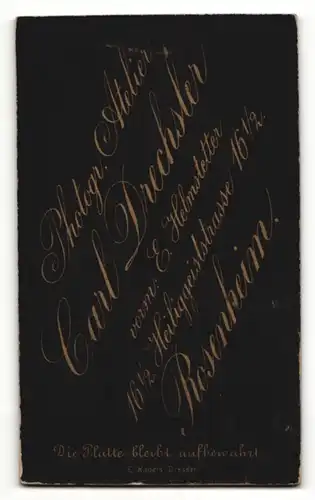 Photogr. Atelier
Carl Drechsler
vorm. E. Helmstetter
16½. Heiliggeiststrasse 16½.
Rosenheim.
Die Platte bleibt aufbewahrt